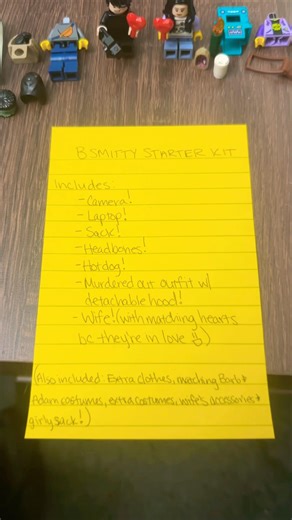 BSMITTY STARTER KIT
Includes:
- Camera!
- Laptop!
- Sack!
- Headbones!
- Hotdog!
- Murdered out outfit w/
detachable hood!
- Wife! (with matching hearts
bc they're in love :))
(Also included: Extra clothes, matching Barb &
Adam costumes, extra costumes, wife's accessories &
girly sack!)